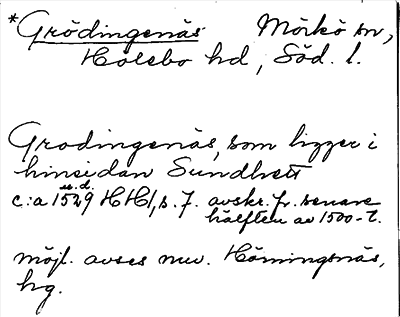 *Grödingenäs Mörkö sn,
Hölebo hd, Söd. l.
Grodingenäs, som ligger i
hinsidan Sundhett
u.d.
c:a 1529 HH1, s. 7. avskr. fr. senare
hälften av 1500-t.
möjl. avses nuv. Höningsnäs,
hg.